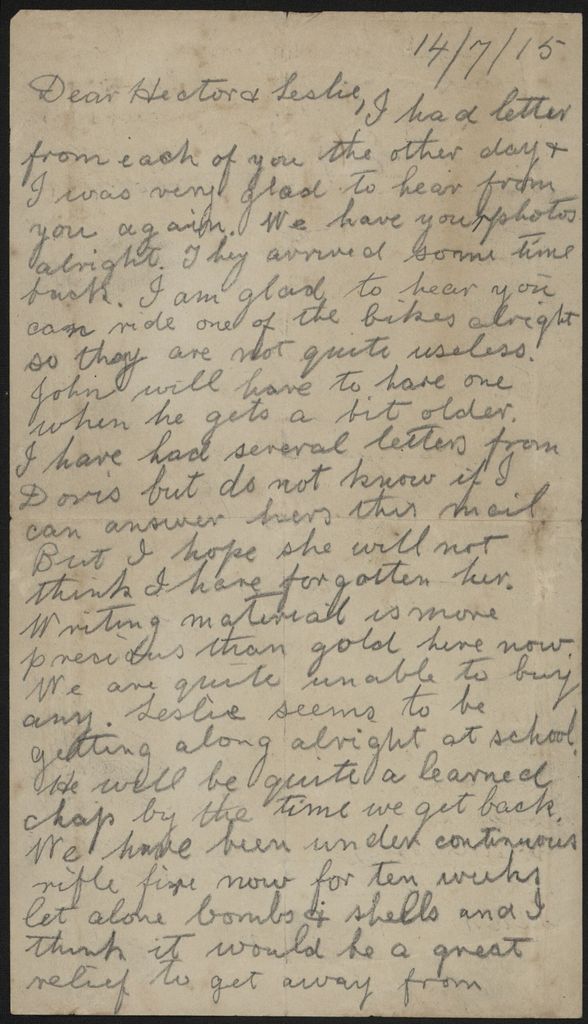 14/7/15
Dear Hector & Leslie, I had letter
from each of you the other day &
I was very glad to hear from
you again. We have your photos
alright. They arrived some time
back. I am glad to hear you
can ride one of the bikes alright
so they are not quite useless.
John will have to have one
when he gets a bit older.
I have had several letters from
Doris but do not know if I
can answer hers this mail
But I hope she will not
think I have forgotten her.
Writing material is more
precious than gold here now.
We are quite unable to buy
any. Leslie seems to be
getting along alright at school.
He will be quite a learned
chap by the time we get back.
We have been under continuous
rifle fire now for ten weeks
let alone bombs & shells and I
think it would be a great
relief to get away from